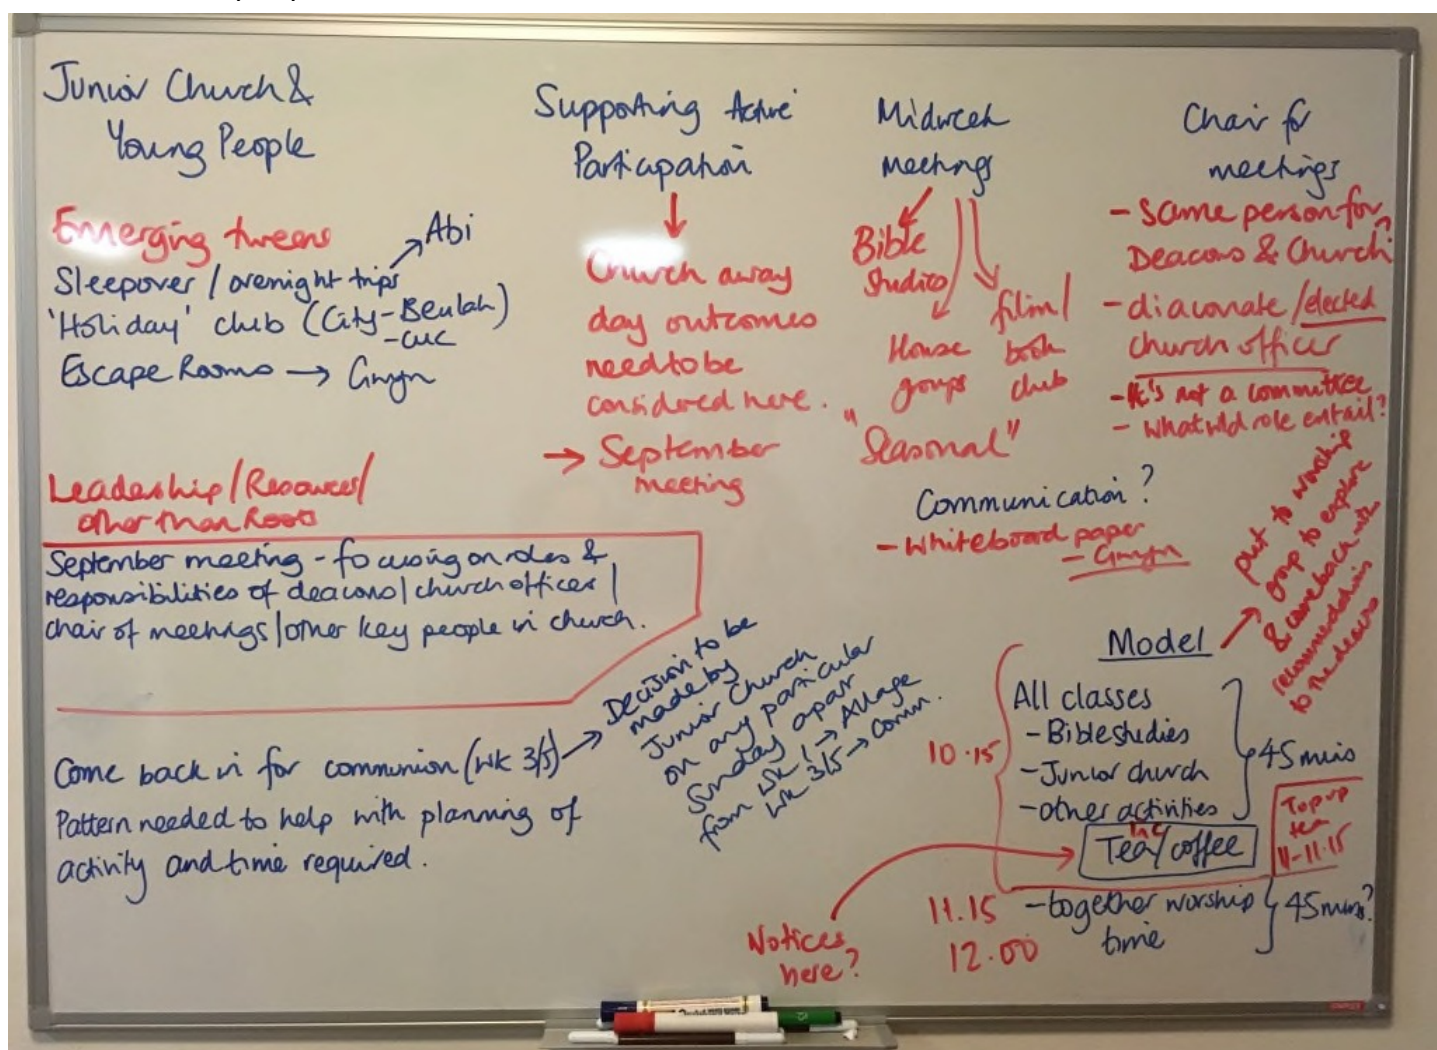 Junior Church &
Young People
Emerging tweens
Sleepover / overnight trips → Abi
'Holiday' club (City - Beulah)
- CUC
Escape Rooms → Gwyn
Leadership / Resources /
other than Roots
September meeting - focusing on roles &
responsibilities of deacons / church officers /
chair of meetings / other key people in church.
Come back in for communion (wk 3/5) →
Pattern needed to help with planning of
activity and time required.
Decision to be
made by
Junior Church
on any particular
Sunday apart
from wk 1 → All age
wk 3/5 → Comm.
Supporting Active
Participation
Church away
day outcomes
need to be
considered here.
→ September
meeting
Midweek
meetings
Bible
studies
House
groups
film /
book
club
"Seasonal"
Communication?
- Whiteboard paper
- Gwyn
Chair for
meetings
- Same person for
Deacons & Church?
- diaconate / elected
church officer
- It's not a committee
- What wld role entail?
Model →
put to worship
group to explore
& come back with
recommendations
to the deacons
10.15
All classes
- Bible studies
- Junior church
- other activities
45 mins
inc
Tea / coffee
Top up
tea
11-11.15
Notices
here?
11.15 - together worship
time
45 mins?
12.00